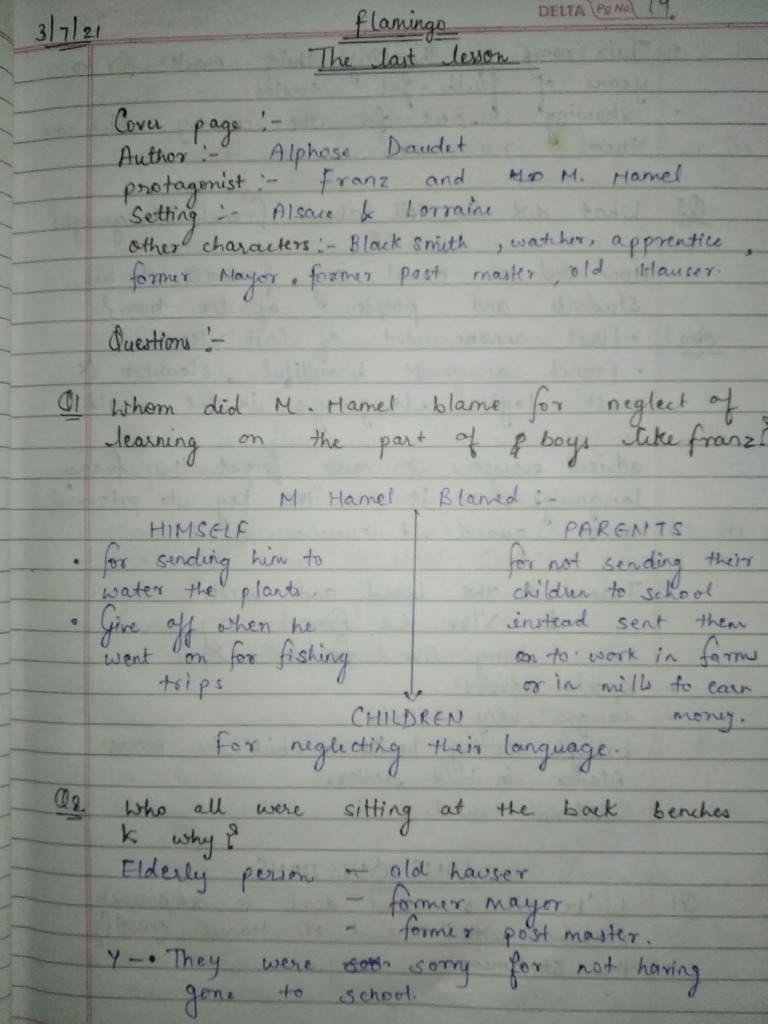 DELTA Pg No. 19.
3/7/21 Flamingo
The last lesson
Cover page :-
Author :- Alphose Daudet
protagonist :- Franz and M. Hamel
Setting :- Alsace & Lorraine
other characters :- Black smith , watcher, apprentice ,
former Mayor , former post master , old Hauser.
Questions :-
Q1 Whom did M. Hamel blame for neglect of
learning on the part of boys like franz?
M Hamel Blamed :-
HIMSELF
• for sending him to
water the plants
• Give off when he
went on for fishing
trips
PARENTS
for not sending their
children to school
instead sent them
on to work in farms
or in mills to earn
money.
CHILDREN
For neglecting their language.
Q2 Who all were sitting at the back benches
& why ?
Elderly person - old hauser
- former mayor
- former post master.
Y - • They were sorry for not having
gone to school.